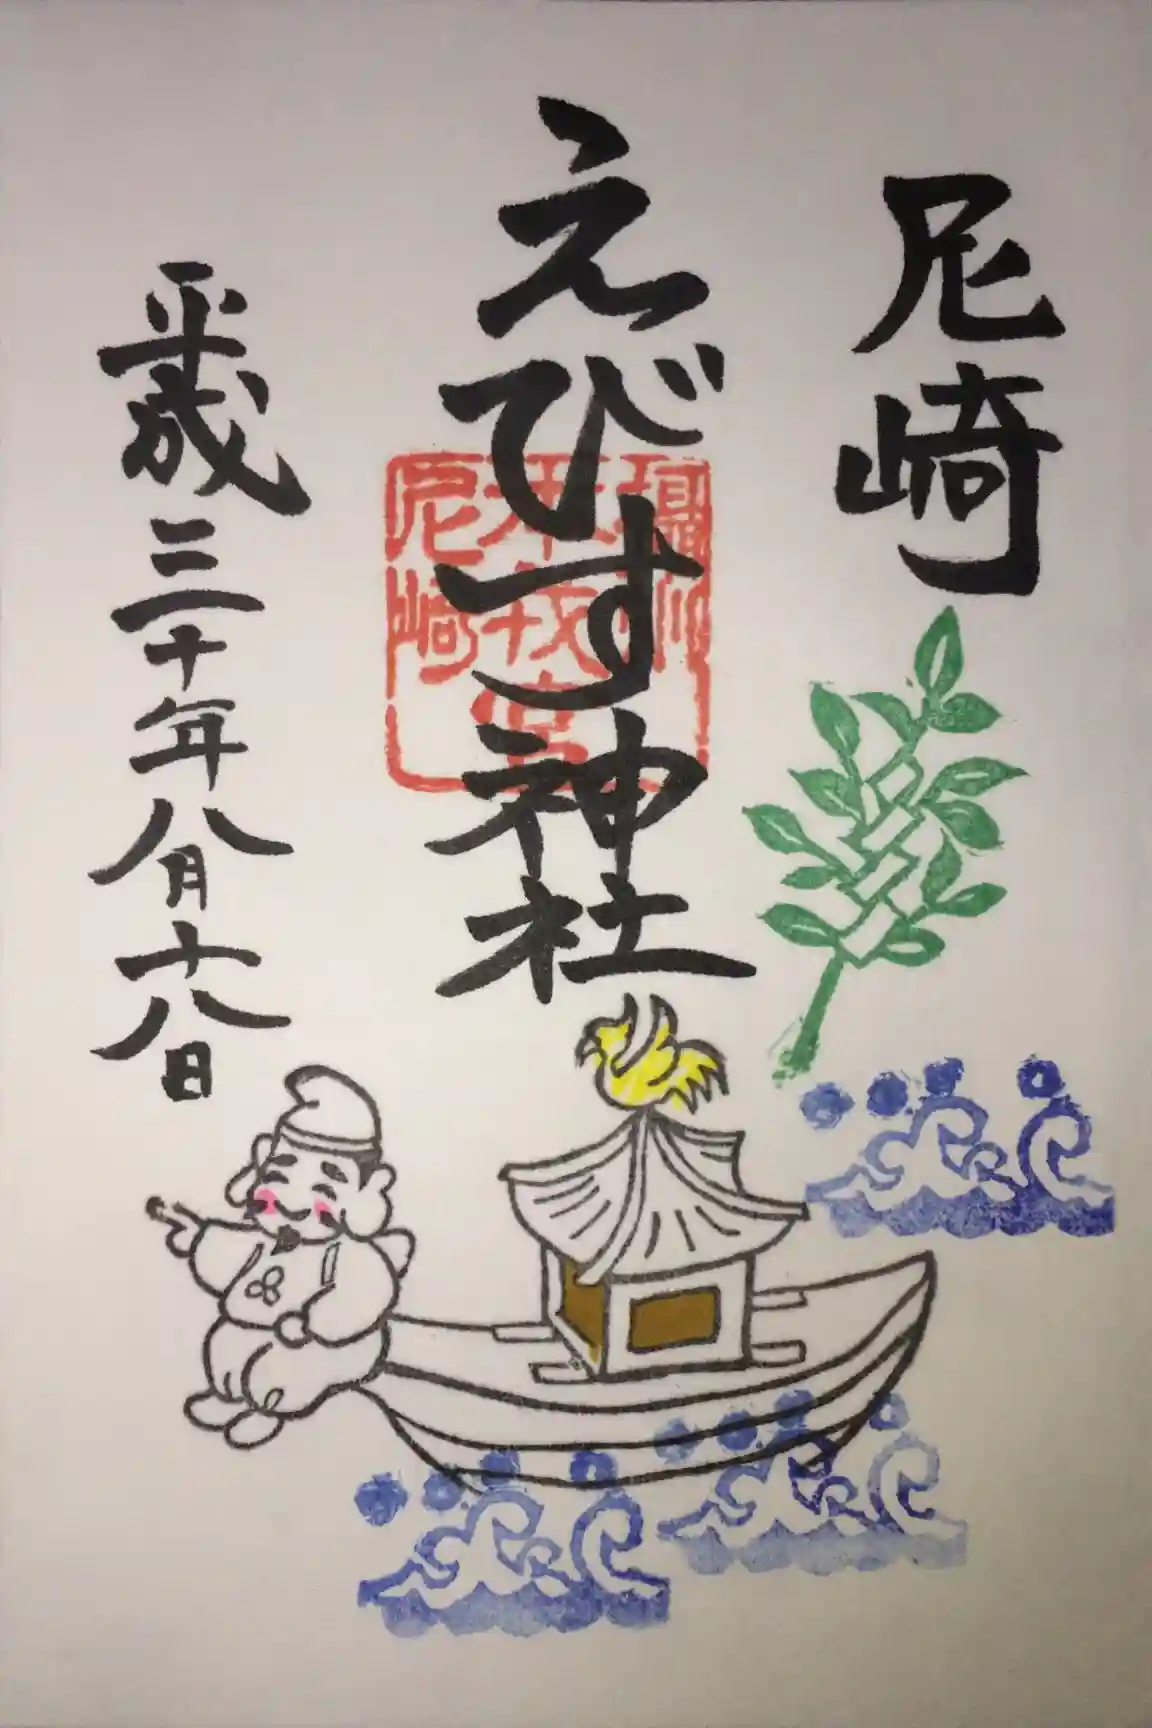 尼崎
えびす神社
平成三十年八月十八日
尼崎